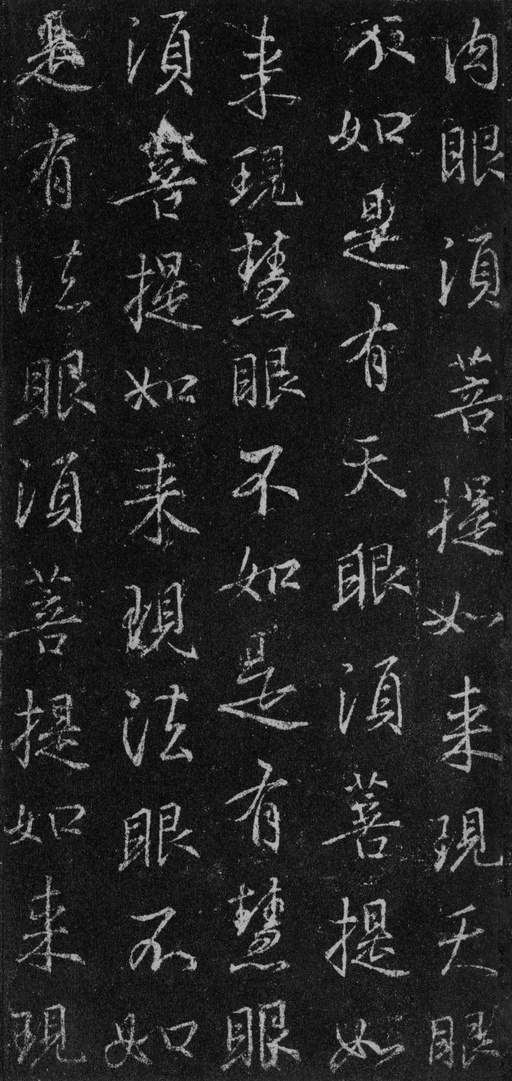 肉眼須菩提如来現天眼
不如是有天眼須菩提如
来現慧眼不如是有慧眼
須菩提如来現法眼不如
是有法眼須菩提如来現